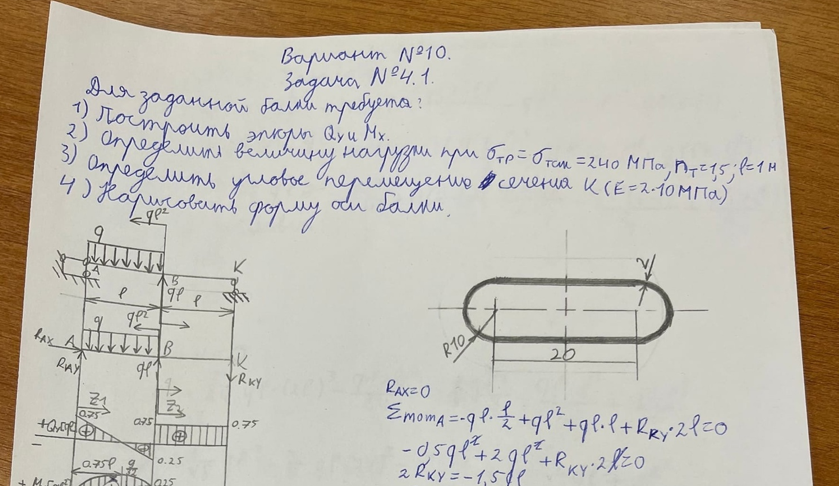 Вариант №10.
Задача №4.1.
Для заданной балки требуется:
1) Построить эпюры Qy и Mx.
2) Определить величину нагрузки при σтр=σтсж=240 МПа, nт=1,5; l=1м
3) Определить угловое перемещение сечения K (E=2·10МПа)
4) Нарисовать форму оси балки.
ql²
q
A
B
K
l
ql
l
ql²
q
RAX
A
B
K
RAY
ql
RKY
Z1
Z2
0.75
0.75
0.75
+Qy
0.25
0.75l
0.25
R10
20
2
RAX=0
ΣmomA=-ql·l/2+ql²+ql·l+RKY·2l=0
-0,5ql²+2ql²+RKY·2l=0
2RKY=-1,5ql